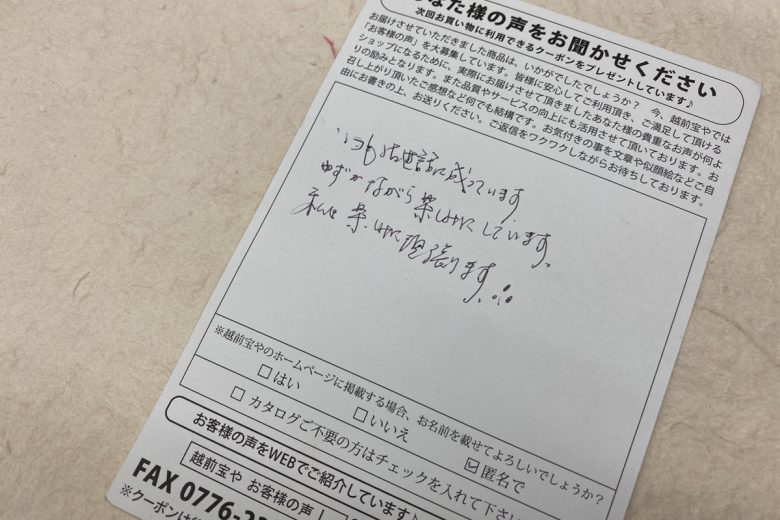 なた様の声をお聞かせください
次回お買い物に利用できるクーポンをプレゼントしています♪
お届けさせていただきました商品は、いかがでしたでしょうか？ 今、越前宝やでは
「お客様の声」を大募集しています。皆様に安心してご利用頂き、ご満足して頂ける
ショップになるために、実際にお届けさせて頂きましたあなた様の貴重なお声が何よ
りの励みとなります。また品質やサービスの向上にも活用させて頂いております。お
召し上がり頂いたご感想など何でも結構です。お気付きの事を文章や似顔絵などご自
由にお書きの上、お送りください。ご返信をワクワクしながらお待ちしております。
いつもお世話に成っています
ながら楽しみにしています。
張ります。
※越前宝やのホームページに掲載する場合、お名前を載せてよろしいでしょうか？
はい
いいえ
匿名で
カタログご不要の方はチェックを入れて下さい
お客様の声をWEBでご紹介しています♪
越前宝や お客様の声
FAX 0776-2
※クーポンは